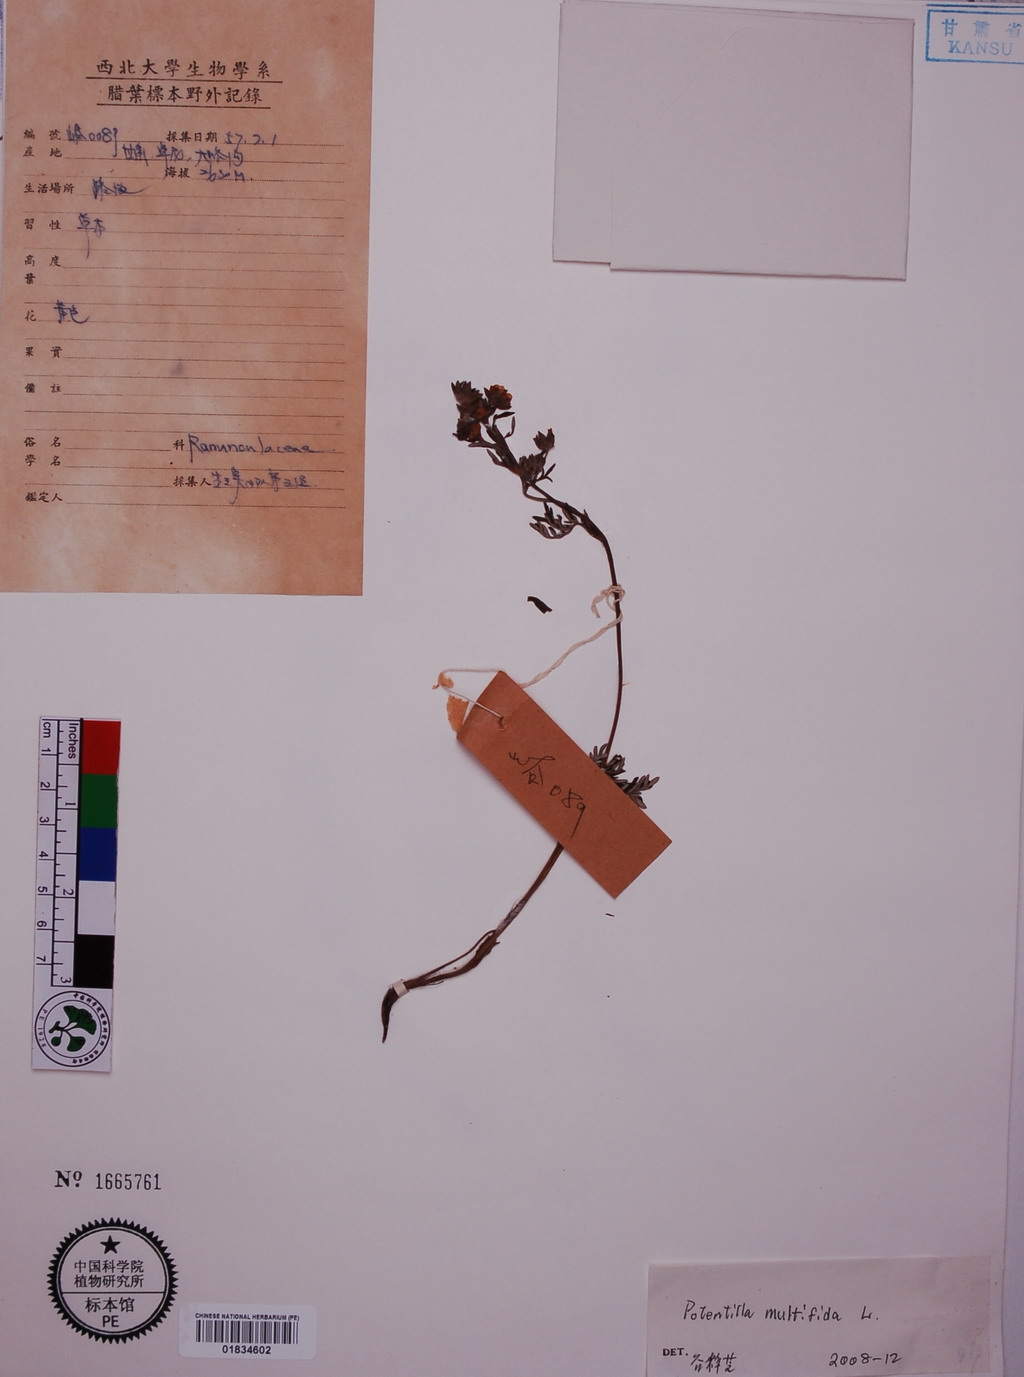 甘肅省
KANSU
西北大學生物學系
腊葉標本野外記錄
編號 0089 採集日期 57.7.1
産地 甘肅
海拔 2630M.
生活場所
習性 草本
高度
葉
花 黄色
果實
備註
俗名 科 Ranunculaceae
學名
採集人
鑑定人
峪089
cm 1 2 3 4 5 6 7
Inches 1 2 3
Nº 1665761
中国科学院
植物研究所
标本馆
PE
CHINESE NATIONAL HERBARIUM (PE)
01834602
Potentilla multifida L.
DET. 2008-12